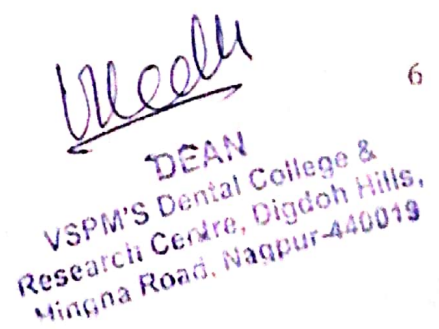 6
DEAN
VSPM'S Dental College &
Research Centre, Digdoh Hills,
Hingna Road, Nagpur-440019